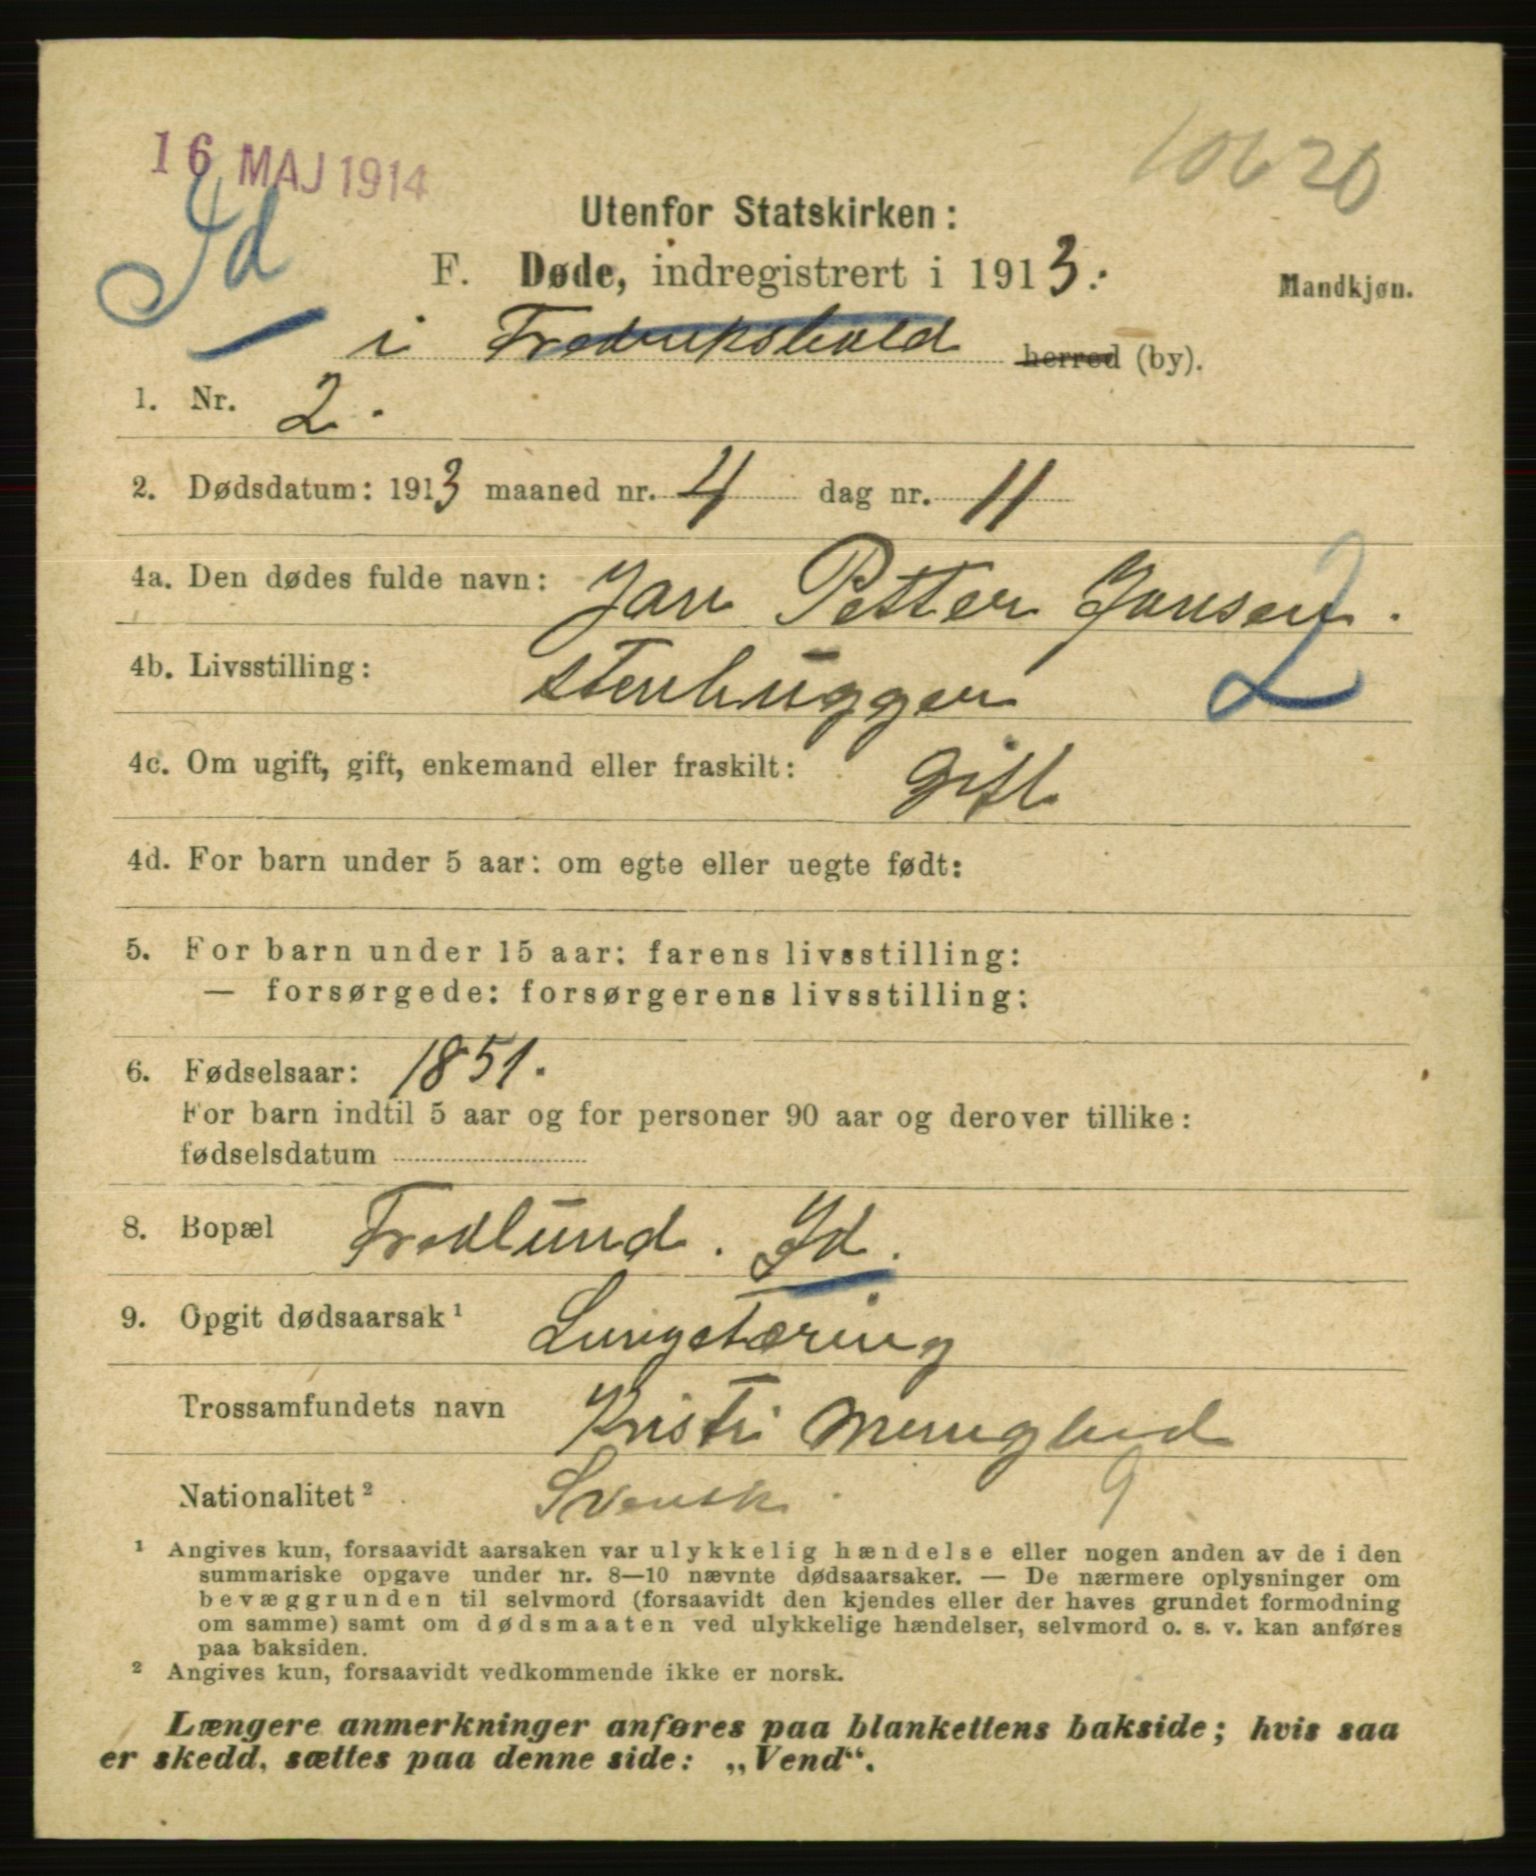 16 MAJ 1914
10620
Id
Utenfor Statskirken:
F. Døde, indregistrert i 1913.
Mandkjøn.
i Fredrikshald herred (by).
1. Nr. 2.
2. Dødsdatum: 1913 maaned nr. 4 dag nr. 11
4a. Den dødes fulde navn: Jan Petter Jansen.
4b. Livsstilling: stenhugger 2
4c. Om ugift, gift, enkemand eller fraskilt: Gift
4d. For barn under 5 aar: om egte eller uegte født:
5. For barn under 15 aar: farens livsstilling:
— forsørgede: forsørgerens livsstilling:
6. Fødselsaar: 1851.
For barn indtil 5 aar og for personer 90 aar og derover tillike:
fødselsdatum
8. Bopæl Fredlund. Id.
9. Opgit dødsaarsak¹ Lungetæring
Trossamfundets navn Kristi Menighed
Nationalitet² Svensk. 9
¹ Angives kun, forsaavidt aarsaken var ulykkelig hændelse eller nogen anden av de i den
summariske opgave under nr. 8—10 nævnte dødsaarsaker. — De nærmere oplysninger om
bevæggrunden til selvmord (forsaavidt den kjendes eller der haves grundet formodning
om samme) samt om dødsmaaten ved ulykkelige hændelser, selvmord o. s. v. kan anføres
paa baksiden.
² Angives kun, forsaavidt vedkommende ikke er norsk.
Længere anmerkninger anføres paa blankettens bakside; hvis saa
er skedd, sættes paa denne side: „Vend“.